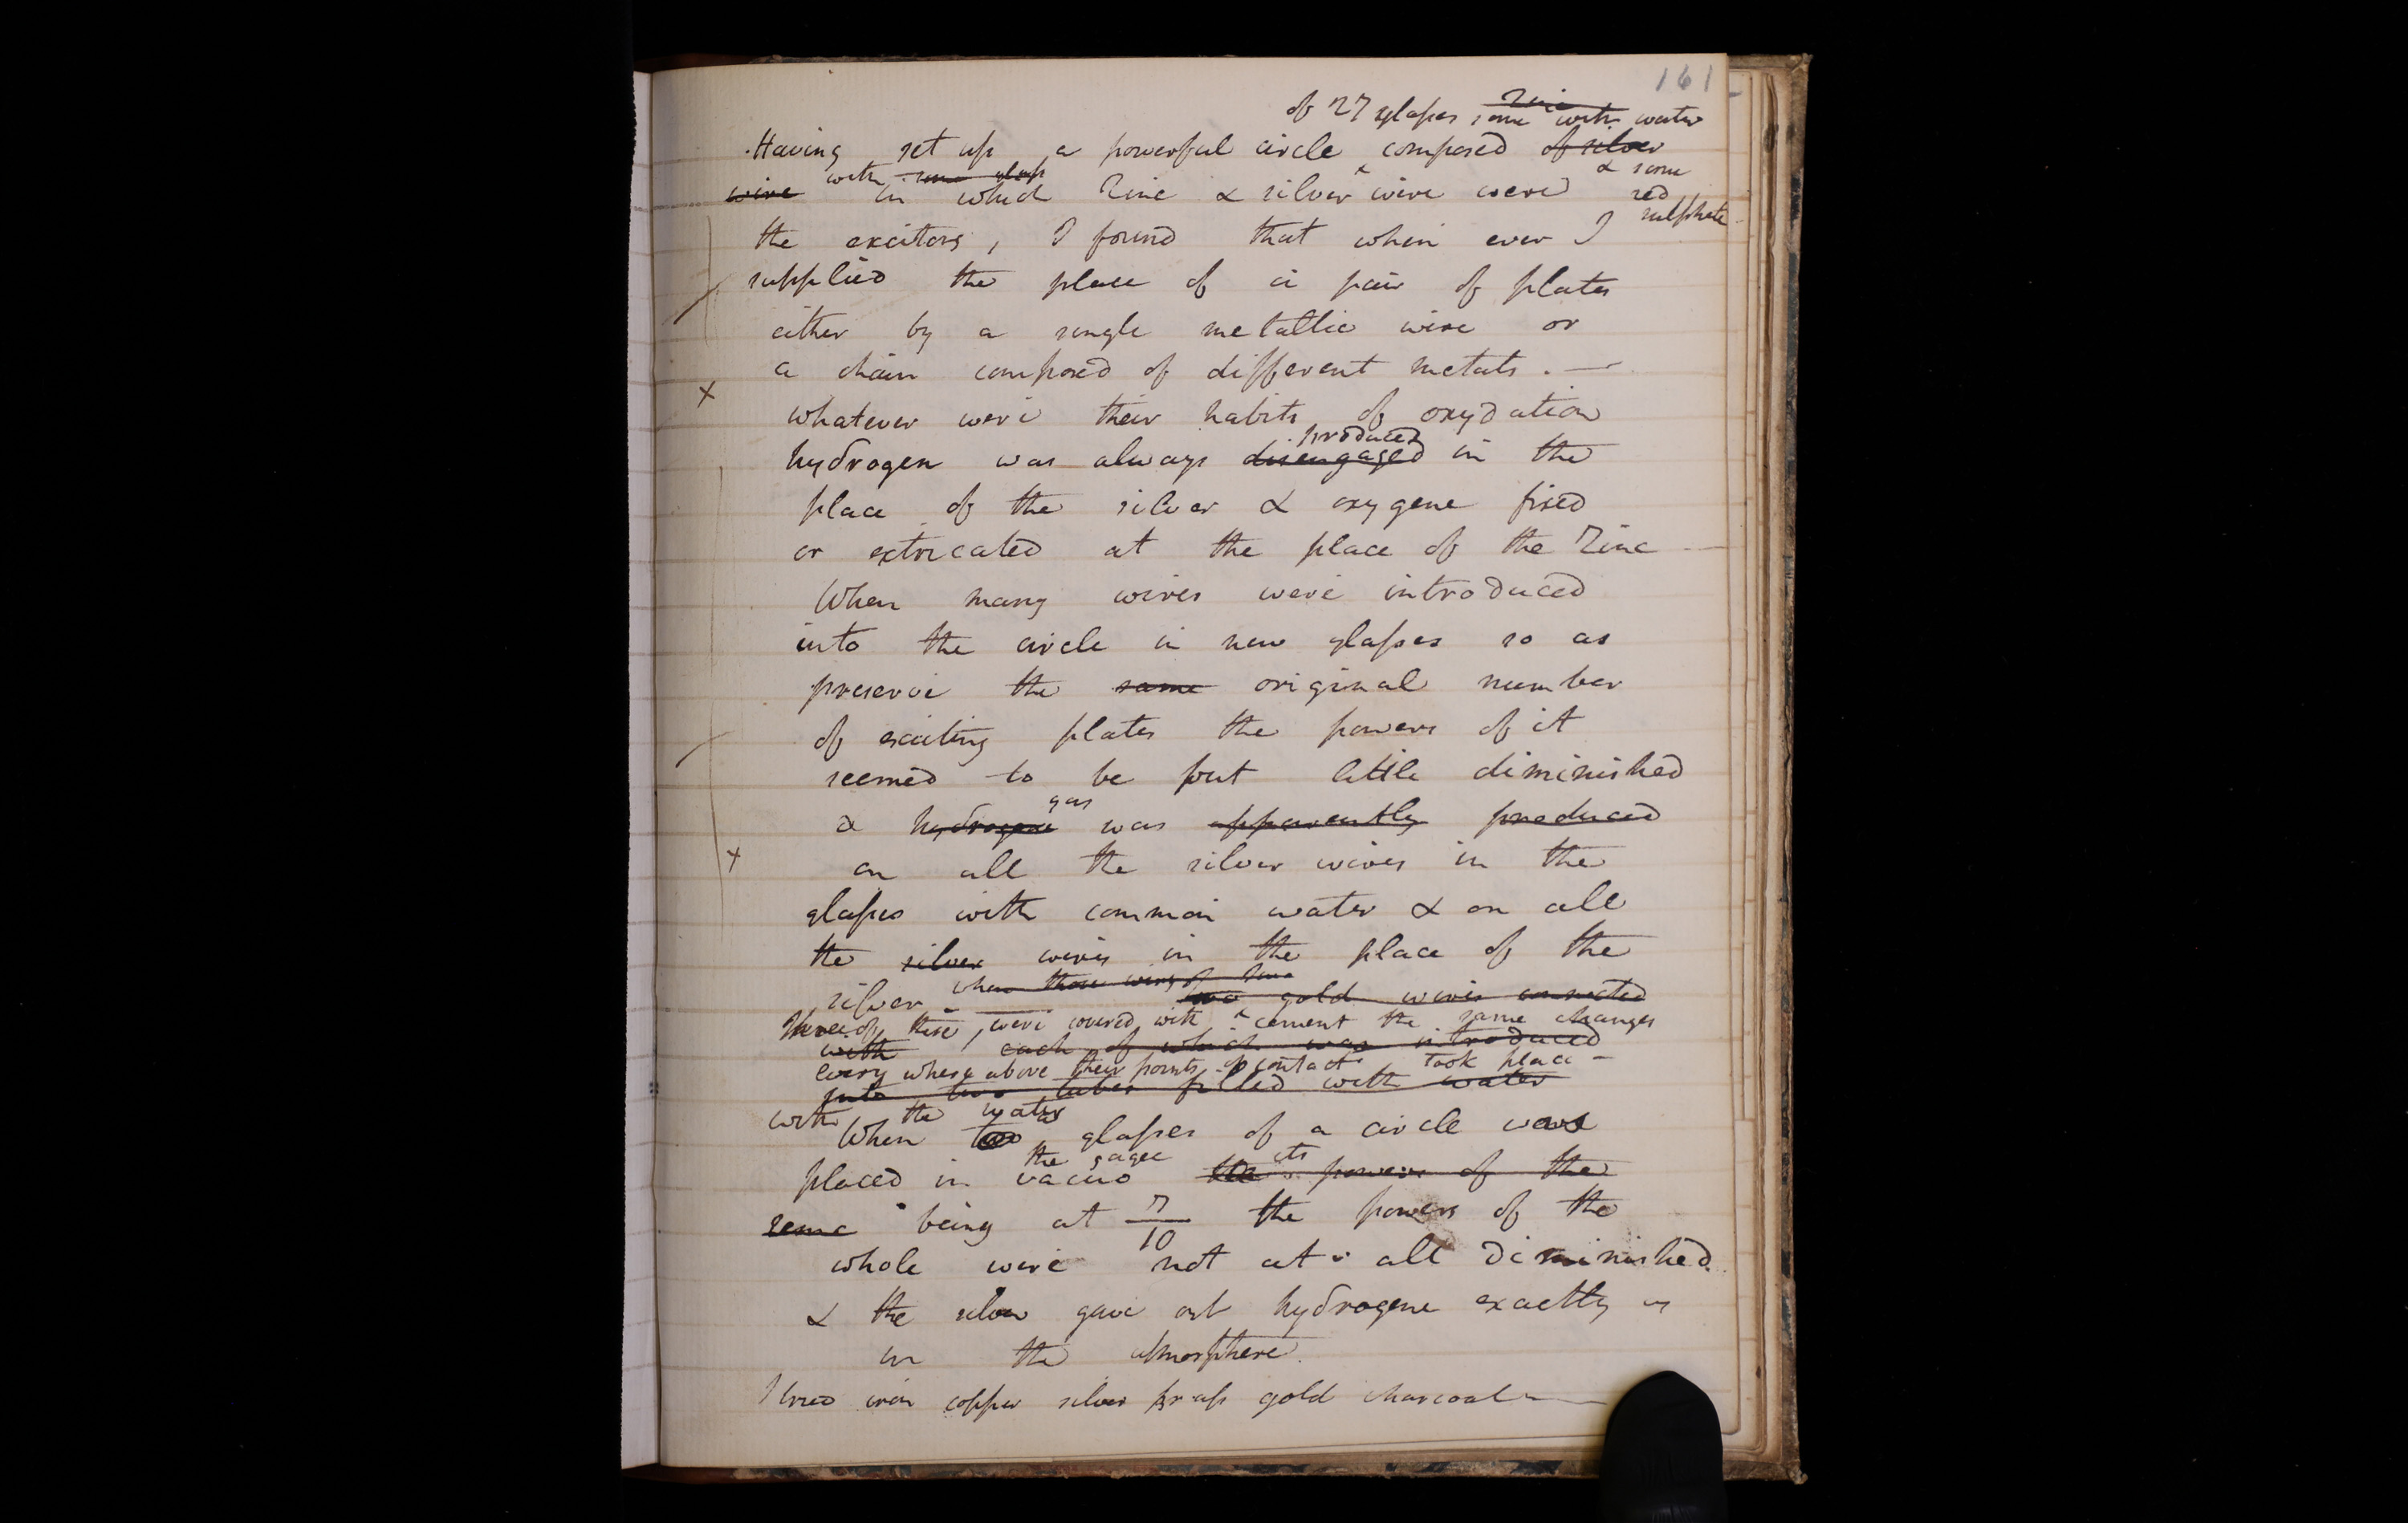 161
of 27 glasses Zinc some with water
Having set up a powerful circle composed of silver
& some
wire with some glass in which Zinc & silver wire were red
sulphate
the exciters, I found that when ever I
supplied the place of a pair of plates
either by a single metallic wire or
a chain composed of different metals. —
x
whatever were their habits of oxydation
produced
hydrogen was always disengaged in the
place of the silver & oxygene fixed
or extricated at the place of the Zinc —
When many wires were introduced
into the circle in new glasses so as
preserve the same original number
of exciting plates the powers of it
seemed to be but little diminished
gas
& hydrogene was apparently produced
x
on all the silver wires in the
glasses with common water & on all
the silver wires in the place of the
when those wires of
silver – two gold wires connected
Three of these, were covered with cement the same changes
with each of which was introduced
every where above their points of contact took place –
into two tubes filled with water
with the water
When two glasses of a circle were
the gage its
placed in vacuo the powers of the
same being at 7/10 the powers of the
whole were not at all diminished.
& the silver gave out hydrogene exactly as
in the atmosphere.
I tried iron copper silver brass gold charcoal —